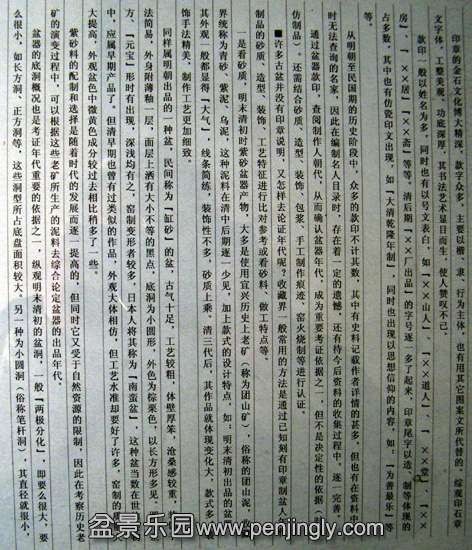 印章的金石文化博大精深，款字众多，主要以楷、隶、行为主体，也有用其它图案文所代替的，综观印石章
文字体，工整美观，功底深厚，其书法艺术显目而生，使人赞叹不已。
款印一般以姓名为多，同时也有以号文表白，如「××山人」、「××道人」、「××堂」、「××
房」、「××居」、「××斋」等等，清后期「××厂出品」的字号逐多了起来，印章尾字以造、制等体现的
占多数，其中也有仿瓷印文出现，如「大清乾隆年制」，同时也出现以思想信仰的内容，如：「为善最乐」等
等。
从明朝至民国期的历史阶段中，众多的款印不计其数，其中有史料记载作者详情的甚多，但也有在资料中
时无法查询的名家，因此在编制名人目录时，存在着一定的遗憾，还有待今后资料的收集过程中，逐一完善。
通过盆器款印，查阅制作人朝代，从而确认盆器年代，成为重要考证依据之一，但不是决定性的依据（
仿制品），还需结合砂质、造型、装饰、包浆、手工制作痕迹、窑火烧制等进行认证。
■许多古盆并没有印章说明，又怎样去论证年代呢？收藏界一般常用的方法是通过已知刻有印章制盆人
制品的砂质、造型、装饰、工艺特征进行比对参考或看砂料、做工特点等。
一是看砂质，明末清初时紫砂盆器产物，大多是使用宜兴历史上老矿（称为团山矿），俗称的团山泥，
界统称为青砂、紫泥、乌泥，这种泥料在清中后期逐一少见，加上款式的设计特点，如：明末清初出品的盆
其外观一般都显得「大气」，线条简练，装饰性不多，砂质上乘，清三代后，其作品就体现变化大，款式多
饰手法精美，制作工艺更加细致。
同样属明朝出品的一种盆，民间称为「缸砂」的盆，古气十足，工艺较粗，体壁厚笨，沧桑感较重，
法简易，外身附薄釉一层，面层上洒有大小不等的黑点，底洞为小圆形，外色为棕栗色，以长方形多见，
方、「元宝」形时有出现，深浅均有之，窑制变形者较多，日本人将其称为「南蛮盆」，这种盆当数在世
中，应属早期产品了。但清早期也曾有过类似的作品，外观大体相仿，但工艺水准却要好了许多，窑制的
大提高，外观盆色中微黄色成分较过去相比稍多了一些。
紫砂料的配制和选择是随着时代的发展而逐一提高的，但同时它又受于自然资源的限制，因此在考察历史老
矿的演变过程中，可以根据这些老矿所生产的泥料去综合论定盆器的出品年代。
盆器的底洞概况也是考证年代重要的依据之一，纵观明末清初的盆洞，一般「两极分化」，即要么很大，要
么很小，如长方洞、正方洞等，这些洞型所占底盘面积较大。另一种为小圆洞（俗称笔杆洞），其直径就很小，
盆景乐园--www.penjingly.com